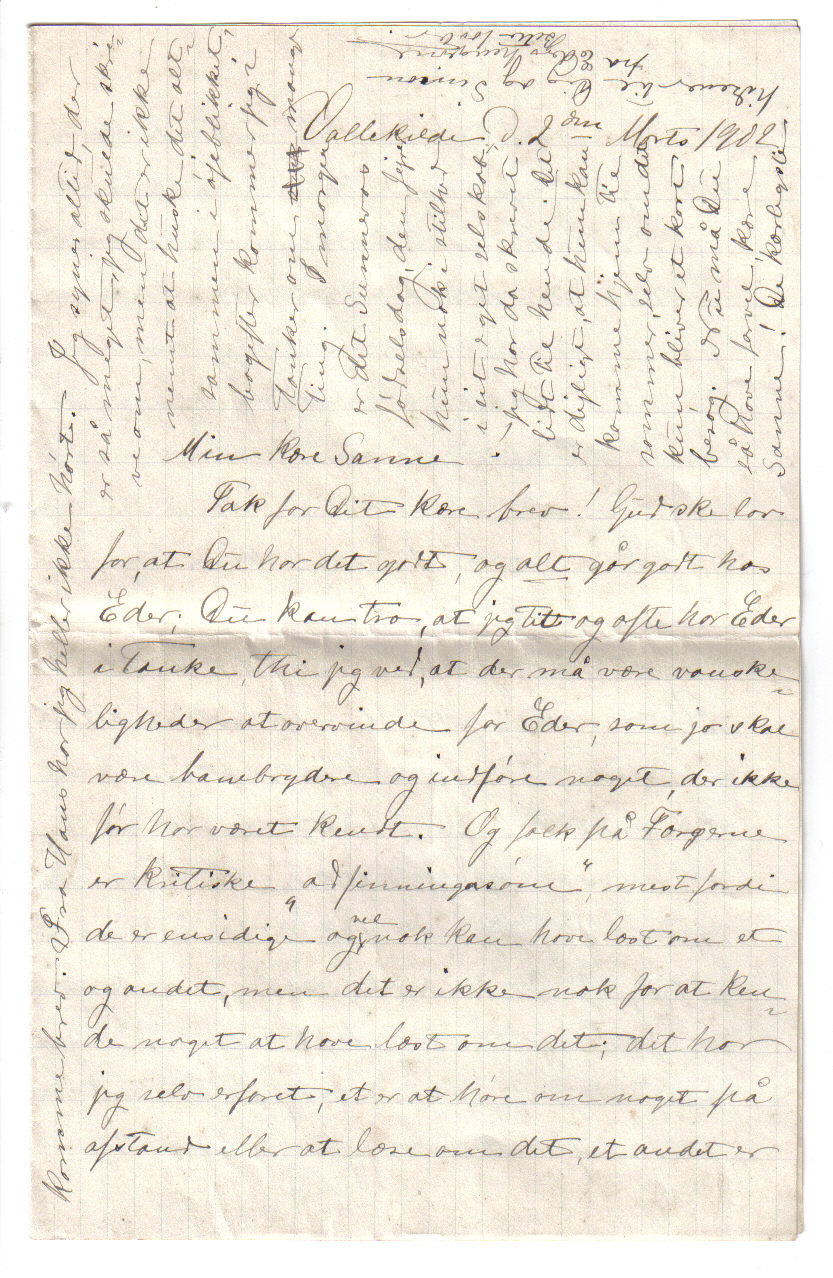 Vallekilde, d. 2den Marts 1902
Min kære Sanne!
Tak for Dit kære brev! Gud ske lov
for, at Du har det godt, og alt går godt hos
Eder; Du kan tro, at jeg tit og ofte har Eder
i tanke, thi jeg ved, at der må være vanske-
ligheder at overvinde for Eder, som jo skal
være banebrydere og indføre noget, der ikke
før har været kendt. Og folk på Færgerne
er kritiske "adfinningasom", mest fordi
de er ensidige og vel nok kan have læst om et
og andet, men det er ikke nok for at ken-
de noget at have læst om det; det har
jeg selv erfaret; et er at høre om noget på
afstand eller at læse om det, et andet er
komme brev. Fra Hans har jeg heller ikke hørt.
Jeg synes altid, der
er så meget, jeg skulde skri-
ve om, men det er ikke
nemt at huske det alt-
sammen i øjeblikket,
bagefter kommer jeg i
tanker om mange
ting. I morgen
er det Sunnevas
fødselsdag, den fejrer
hun nok i stilhed
i sit eget selskab,
jeg har da skrevet
lidt til hende. Det
er dejligt, at hun kan
komme hjem til
sommer, selv om det
kun bliver et kort
besøg. Nu må Du
så have farvel, kære
Sanne! De kærligste
hilsener til Dig og Simon
fra Eders hengivne